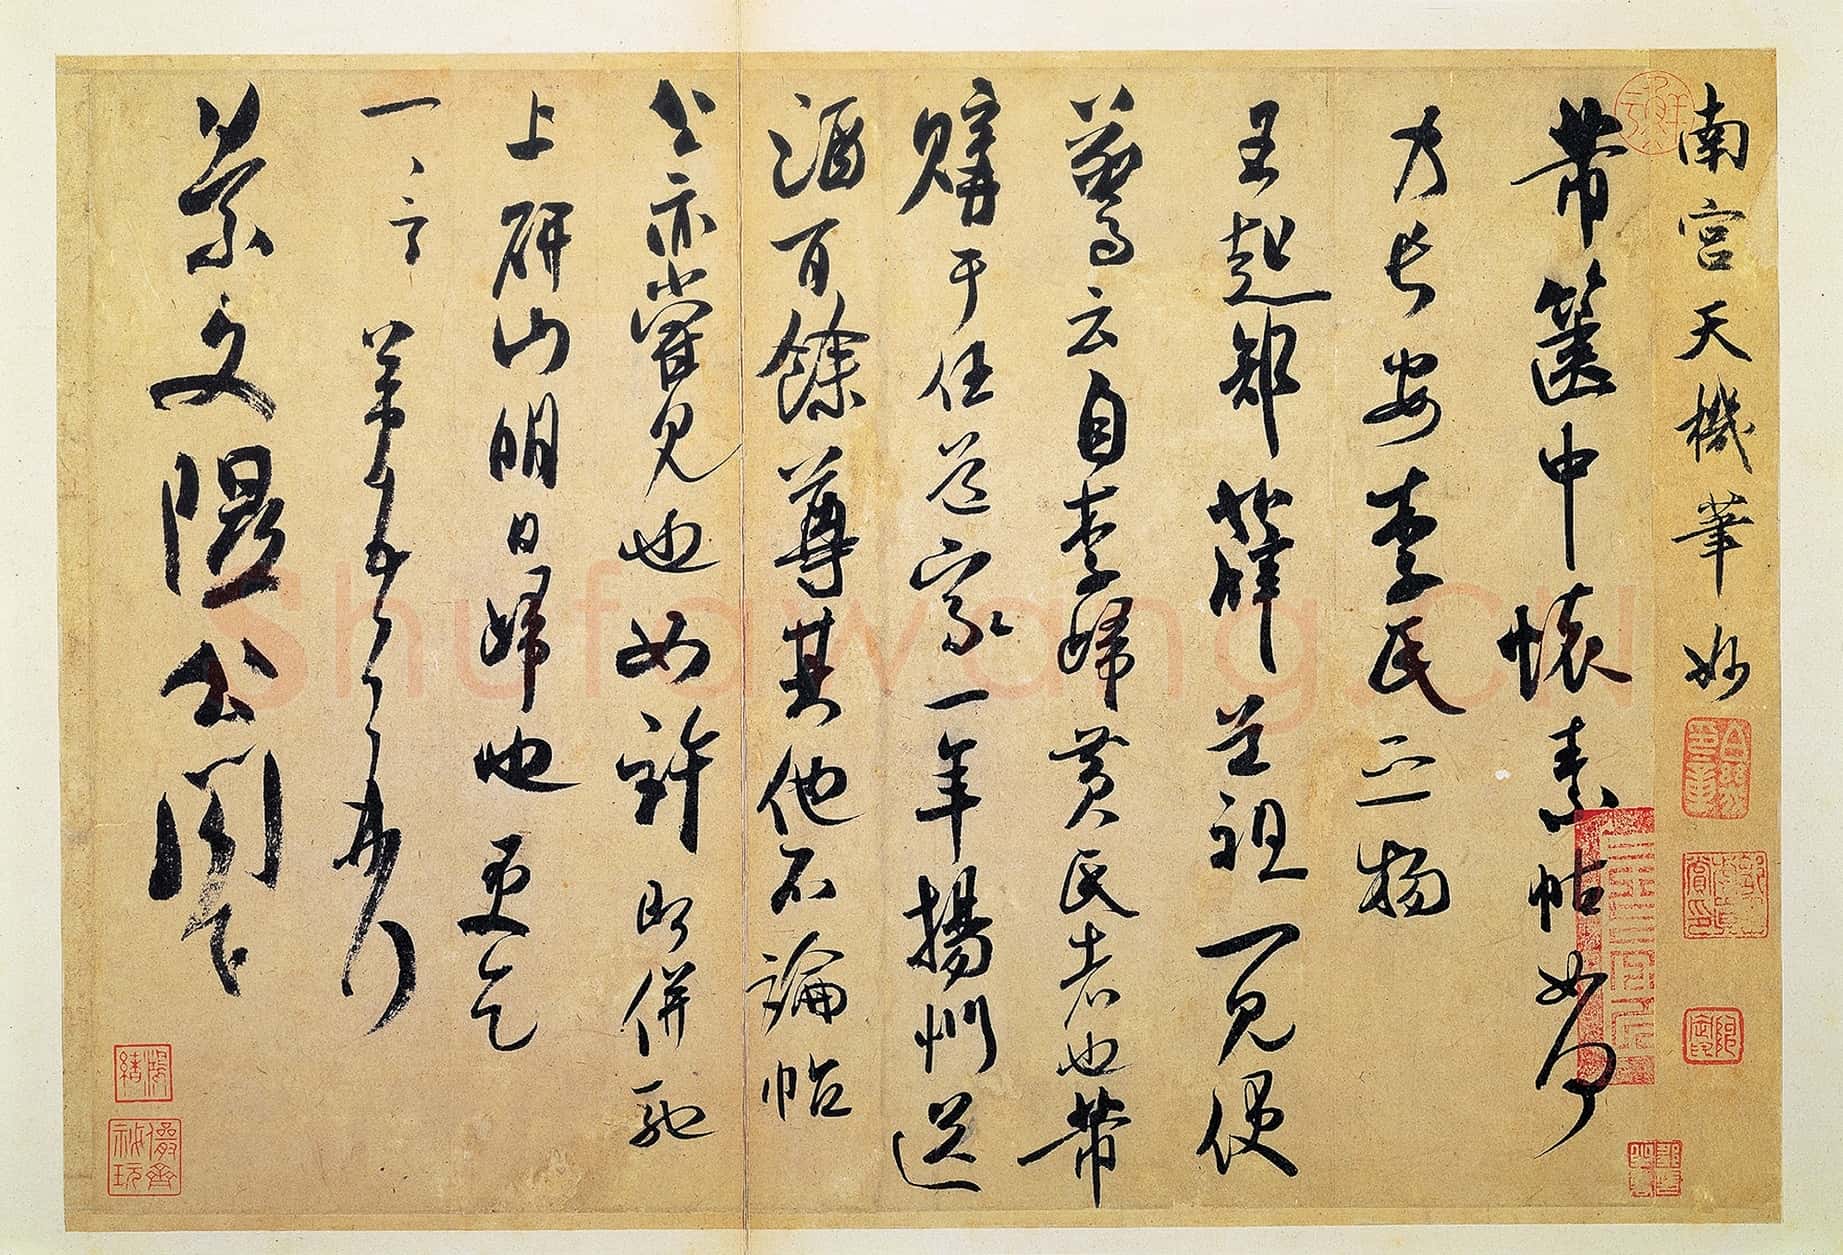 南宮天機筆妙
芾篋中懷素帖如何
乃長安李氏之物
王起部薛道祖一見便
驚云自李歸黃氏者也芾
購于任道家一年揚州送
酒百餘尊其他不論帖
公亦嘗見也如許即併馳
上研山明日歸也更乞
一言芾頓首再拜
景文隰公閣下
shufawang.cn